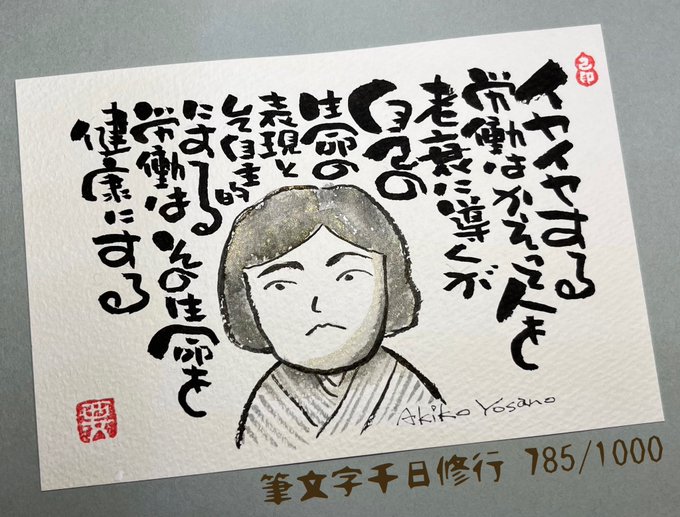 イヤイヤする
労働はかえって人を
老衰に導くが
自己の
生命の
表現と
して自主的
にする
労働はその生命を
健康にする
Akiko Yosano
筆文字千日修行 785/1000